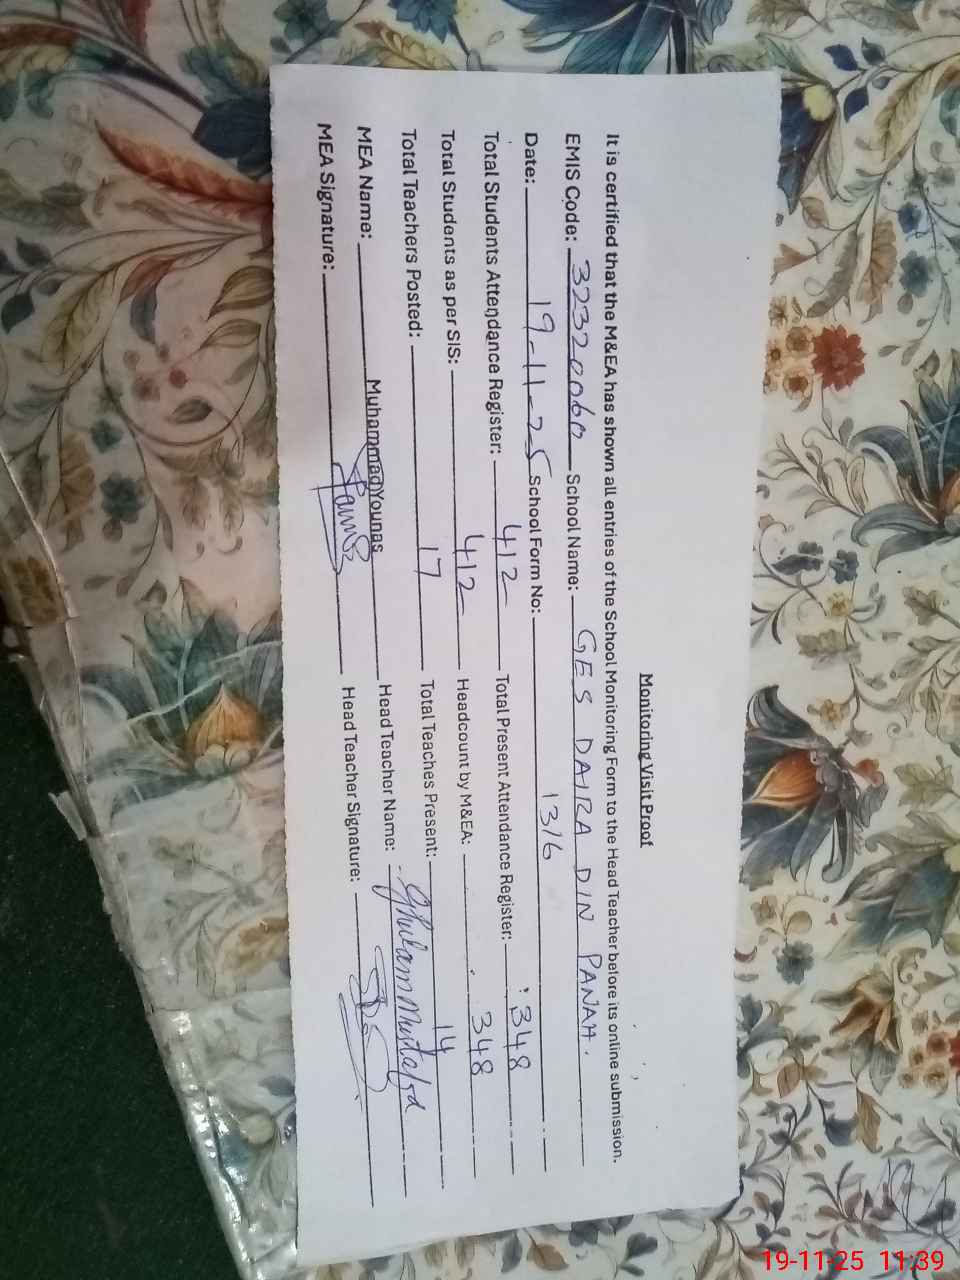 Monitoring Visit Proof
It is certified that the M&EA has shown all entries of the School Monitoring Form to the Head Teacher before its online submission.
EMIS Code: 32320060 School Name: GES DAIRA DIN PANAH.
Date: 19-11-25 School Form No: 1316
Total Students Attendance Register: 412 Total Present Attendance Register: 348
Total Students as per SIS: 412 Headcount by M&EA: 348
Total Teachers Posted: 17 Total Teaches Present: 14
MEA Name: Muhammad Younas Head Teacher Name: Ghulam Mustafa
MEA Signature: Head Teacher Signature:
19-11-25 11:39